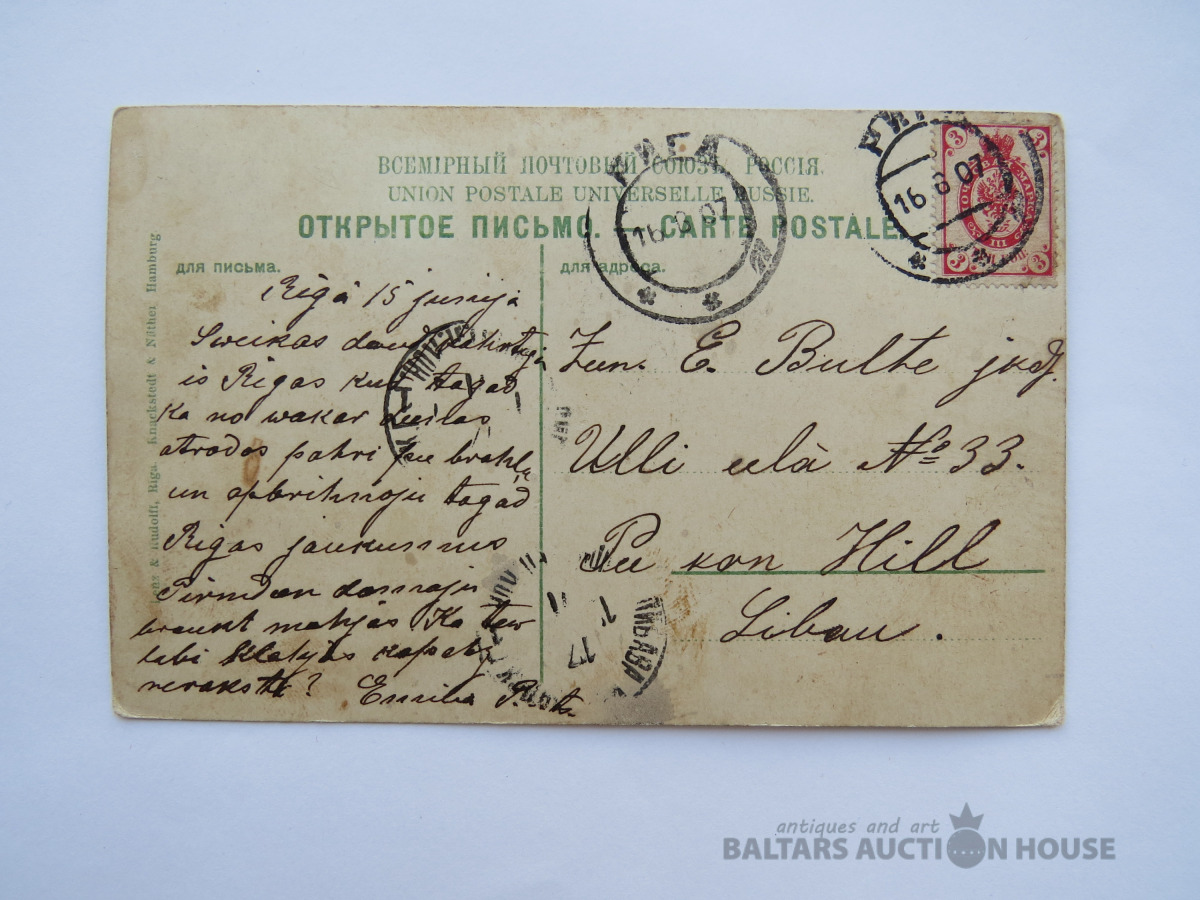 ВСЕМІРНЫЙ ПОЧТОВЫЙ СОЮЗЪ. РОССІЯ.
UNION POSTALE UNIVERSELLE RUSSIE.
ОТКРЫТОЕ ПИСЬМО. CARTE POSTALE.
для письма.
Rigâ 15 junija
Sweikas
is Rigas kur tagad
Ka no wakar
atrodos pahri pee brahļa
un apbrihnoju tagad
Rigas jaukumus
Pirmdeen domaju
braukt mahjâs Ka tew
labi klahjās kapehz
neraksti? Emilia
для адреса.
E. Bulte
Ulli eelâ № 33.
Pee kon Hill
Libau.
РИГА
16 6 07
РИГА
16 6 07
3 3
ПОЧТОВАЯ МАРКА
3 3
ЛИБАВА
17
& Rudolff, Riga. Knackstedt & Näther, Hamburg
antiques and art
BALTARS AUCTION HOUSE